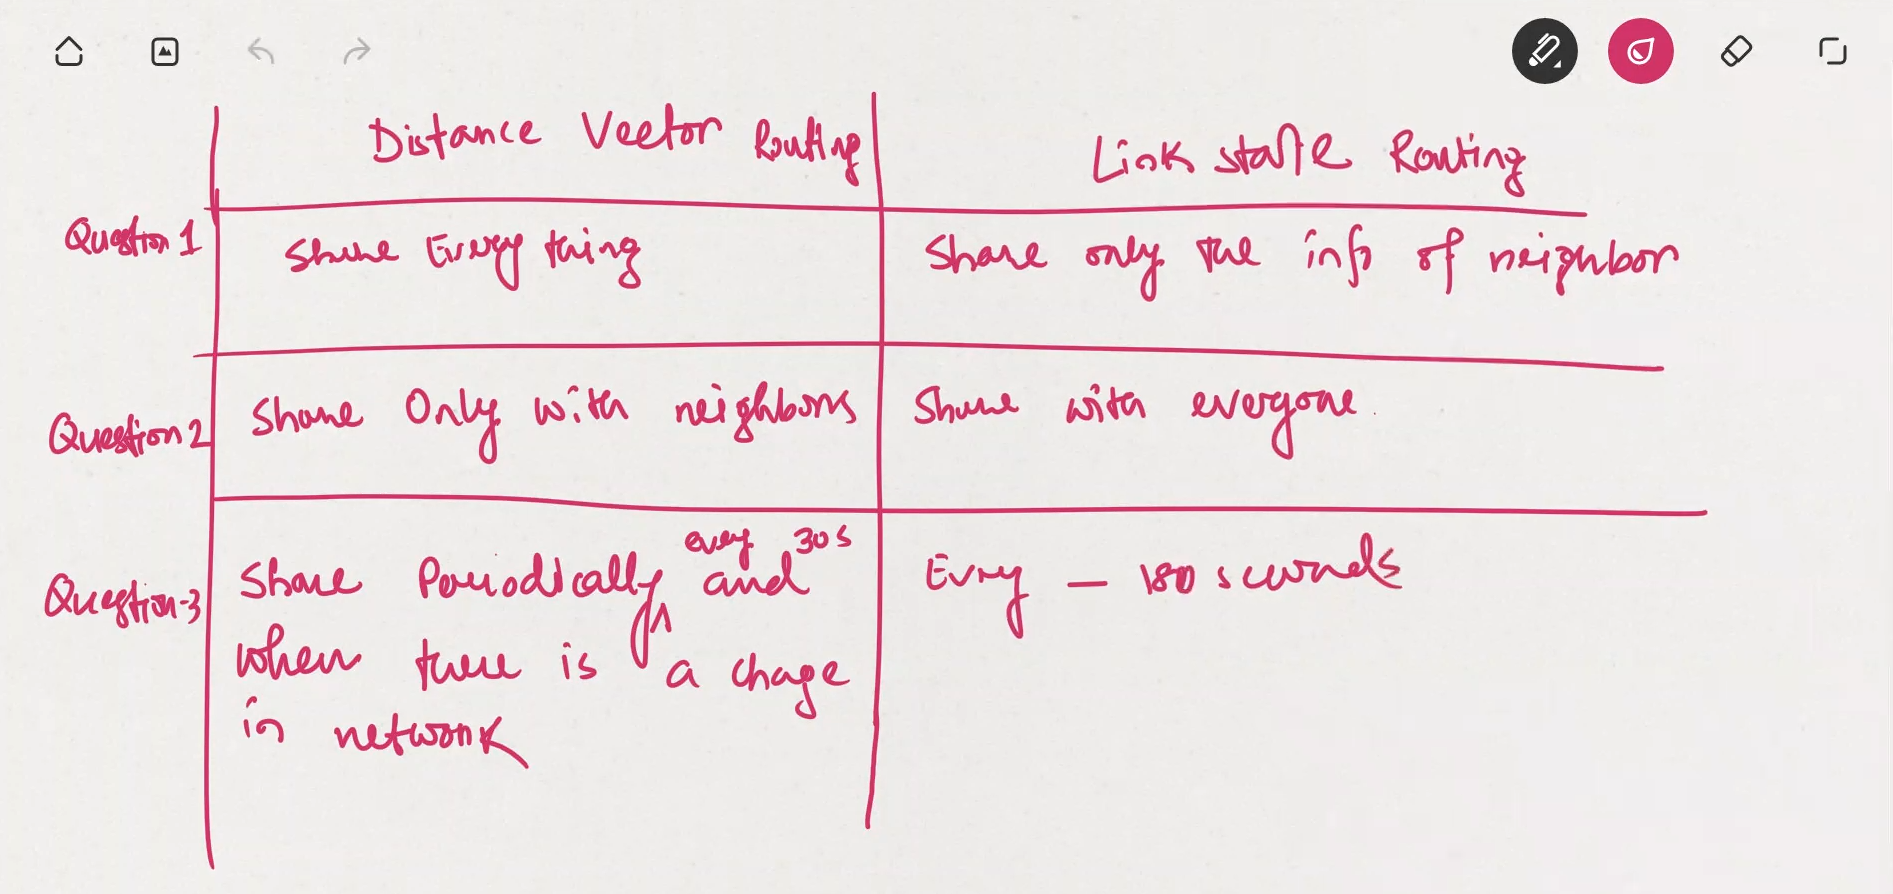 Distance Vector Routing
Link state Routing
Question 1
Share Every thing
Share only the info of neighbor
Question 2
Share Only with neighbors
Share with everyone.
Question-3
every 30s
Share Periodically ^ and
when there is a chage
in network
Evry — 180 seconds